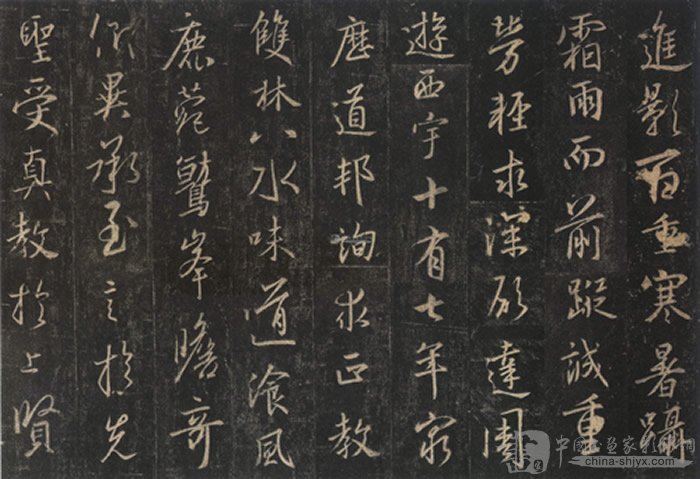 進影百重寒暑躡
霜雨而前蹤誠重
勞輕求深願達周
遊西宇十有七年窮
歷道邦詢求正教
雙林八水味道飡風
鹿菀鷲峯瞻奇
仰異承至言於先
聖受真教於上賢
china-shjyx.com